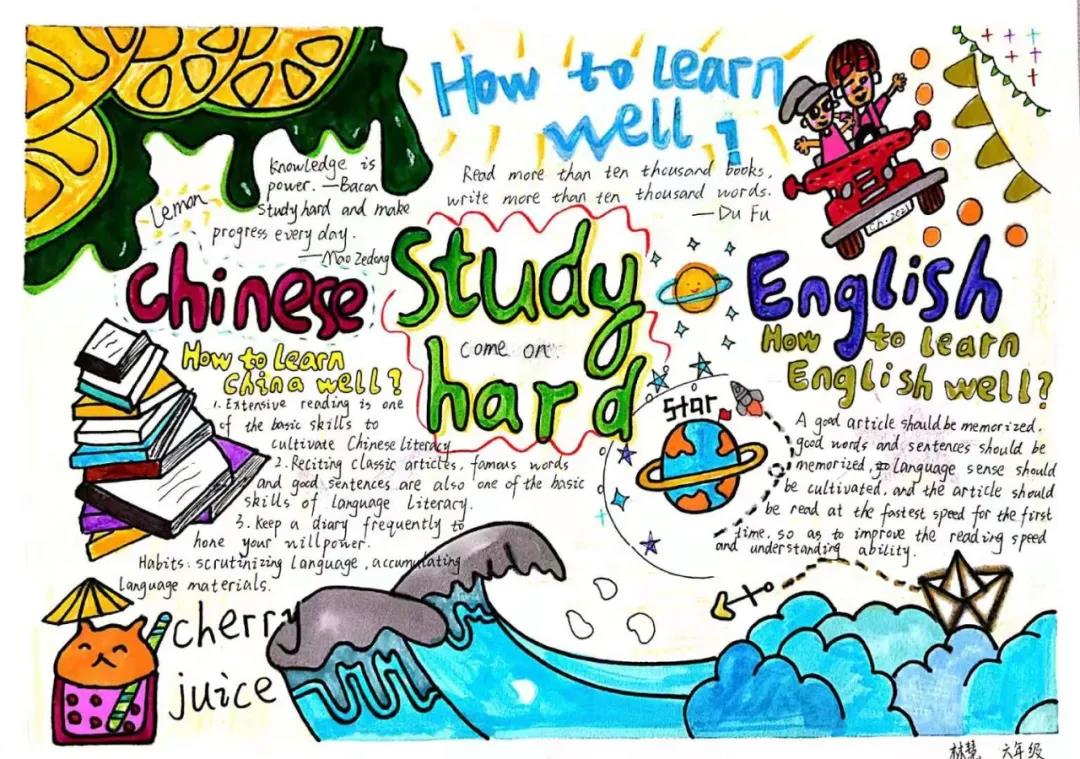 How to learn
well ?
Knowledge is
power. —Bacon
Study hard and make
progress every day.
—Mao Zedong
Lemon
Read more than ten thousand books,
write more than ten thousand words.
—Du Fu
Chinese
Study
come on
hard
English
How to learn
China well?
1. Extensive reading is one
of the basic skills to
cultivate Chinese literacy
2. Reciting classic articles, famous words
and good sentences are also one of the basic
skills of language literacy.
3. Keep a diary frequently to
hone your willpower.
Habits: scrutinizing language, accumulating
language materials.
star
How to learn
English well?
A good article should be memorized,
good words and sentences should be
memorized, language sense should
be cultivated, and the article should
be read at the fastest speed for the first
time, so as to improve the reading speed
and understanding ability.
cherry
juice
林慧 六年级